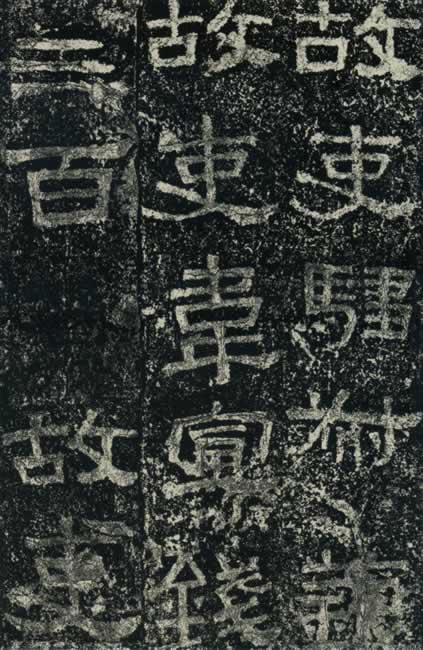 故吏騶叔
故吏韋錢
三百 故吏